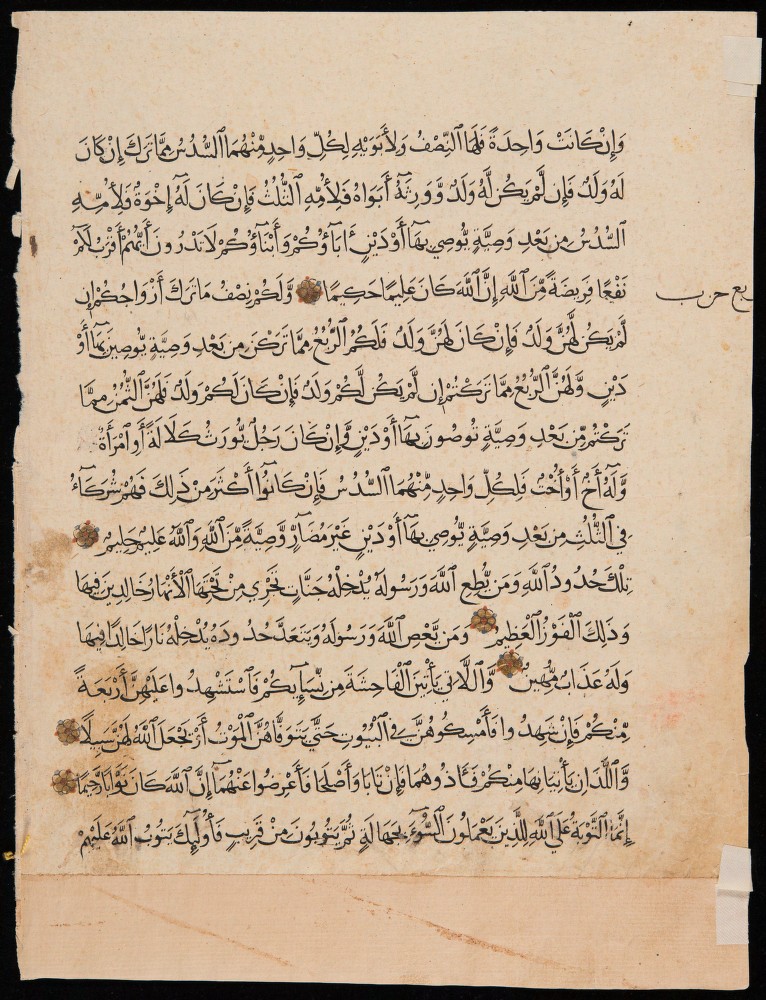 وَإِنْ كَانَتْ وَاحِدَةً فَلَهَا ٱلنِّصْفُ وَلِأَبَوَيْهِ لِكُلِّ وَاحِدٍ مِّنْهُمَا ٱلسُّدُسُ مِمَّا تَرَكَ إِنْ كَانَ
لَهُ وَلَدٌ فَإِن لَّمْ يَكُن لَّهُ وَلَدٌ وَّوَرِثَهُ أَبَوَاهُ فَلِأُمِّهِ ٱلثُّلُثُ فَإِنْ كَانَ لَهُ إِخْوَةٌ فَلِأُمِّهِ
ٱلسُّدُسُ مِنۢ بَعْدِ وَصِيَّةٍ يُّوصِي بِهَا أَوْ دَيْنٍ ءَابَآؤُكُمْ وَأَبْنَآؤُكُمْ لَا تَدْرُونَ أَيُّهُمْ أَقْرَبُ لَكُمْ
نَفْعًا فَرِيضَةً مِّنَ ٱللَّهِ إِنَّ ٱللَّهَ كَانَ عَلِيمًا حَكِيمًا وَلَكُمْ نِصْفُ مَا تَرَكَ أَزْوَاجُكُمْ إِن
ربع حزب
لَّمْ يَكُن لَّهُنَّ وَلَدٌ فَإِنْ كَانَ لَهُنَّ وَلَدٌ فَلَكُمُ ٱلرُّبُعُ مِمَّا تَرَكْنَ مِنۢ بَعْدِ وَصِيَّةٍ يُّوصِينَ بِهَا أَوْ
دَيْنٍ وَّلَهُنَّ ٱلرُّبُعُ مِمَّا تَرَكْتُمْ إِن لَّمْ يَكُن لَّكُمْ وَلَدٌ فَإِنْ كَانَ لَكُمْ وَلَدٌ فَلَهُنَّ ٱلثُّمُنُ مِمَّا
تَرَكْتُم مِّنۢ بَعْدِ وَصِيَّةٍ تُوصُونَ بِهَا أَوْ دَيْنٍ وَّإِنْ كَانَ رَجُلٌ يُّورَثُ كَلَالَةً أَوِ ٱمْرَأَةٌ
وَّلَهُ أَخٌ أَوْ أُخْتٌ فَلِكُلِّ وَاحِدٍ مِّنْهُمَا ٱلسُّدُسُ فَإِنْ كَانُوا أَكْثَرَ مِنْ ذَٰلِكَ فَهُمْ شُرَكَآءُ
فِي ٱلثُّلُثِ مِنۢ بَعْدِ وَصِيَّةٍ يُّوصِي بِهَا أَوْ دَيْنٍ غَيْرَ مُضَآرٍّ وَّصِيَّةً مِّنَ ٱللَّهِ وَٱللَّهُ عَلِيمٌ حَلِيمٌ
تِلْكَ حُدُودُ ٱللَّهِ وَمَن يُّطِعِ ٱللَّهَ وَرَسُولَهُ يُدْخِلْهُ جَنَّاتٍ تَجْرِي مِنْ تَحْتِهَا ٱلْأَنْهَارُ خَالِدِينَ فِيهَا
وَذَٰلِكَ ٱلْفَوْزُ ٱلْعَظِيمُ وَمَن يَّعْصِ ٱللَّهَ وَرَسُولَهُ وَيَتَعَدَّ حُدُودَهُ يُدْخِلْهُ نَارًا خَالِدًا فِيهَا
وَلَهُ عَذَابٌ مُّهِينٌ وَّٱللَّاتِي يَأْتِينَ ٱلْفَاحِشَةَ مِن نِّسَآئِكُمْ فَٱسْتَشْهِدُوا عَلَيْهِنَّ أَرْبَعَةً
مِّنكُمْ فَإِنْ شَهِدُوا فَأَمْسِكُوهُنَّ فِي ٱلْبُيُوتِ حَتَّىٰ يَتَوَفَّاهُنَّ ٱلْمَوْتُ أَوْ يَجْعَلَ ٱللَّهُ لَهُنَّ سَبِيلًا
وَّٱللَّذَانِ يَأْتِيَانِهَا مِنكُمْ فَـَٔاذُوهُمَا فَإِنْ تَابَا وَأَصْلَحَا فَأَعْرِضُوا عَنْهُمَا إِنَّ ٱللَّهَ كَانَ تَوَّابًا رَّحِيمًا
إِنَّمَا ٱلتَّوْبَةُ عَلَى ٱللَّهِ لِلَّذِينَ يَعْمَلُونَ ٱلسُّوٓءَ بِجَهَالَةٍ ثُمَّ يَتُوبُونَ مِنْ قَرِيبٍ فَأُولَٰئِكَ يَتُوبُ ٱللَّهُ عَلَيْهِمْ